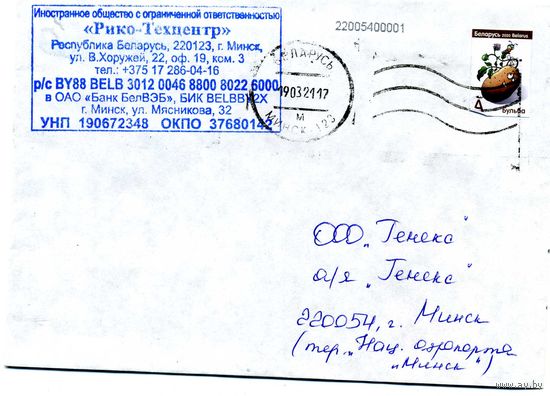 Иностранное общество с ограниченной ответственностью
«Рико-Техцентр»
Республика Беларусь, 220123, г. Минск,
ул. В.Хоружей, 22, оф. 19, ком. 3
тел.: +375 17 286-04-16
р/с BY88 BELB 3012 0046 8800 8022 6000
в ОАО «Банк БелВЭБ», БИК BELBBY2X
г. Минск, ул. Мясникова, 32
УНП 190672348 ОКПО 37680142
22005400001
БЕЛАРУСЬ
19032117
М
МИНСК 123
Беларусь 2020 Belarus
А
Бульба
ООО „Генекс“
а/я „Генекс“
220054, г. Минск
(тер. „Нац. аэропорта
„Минск“)
www.ay.by